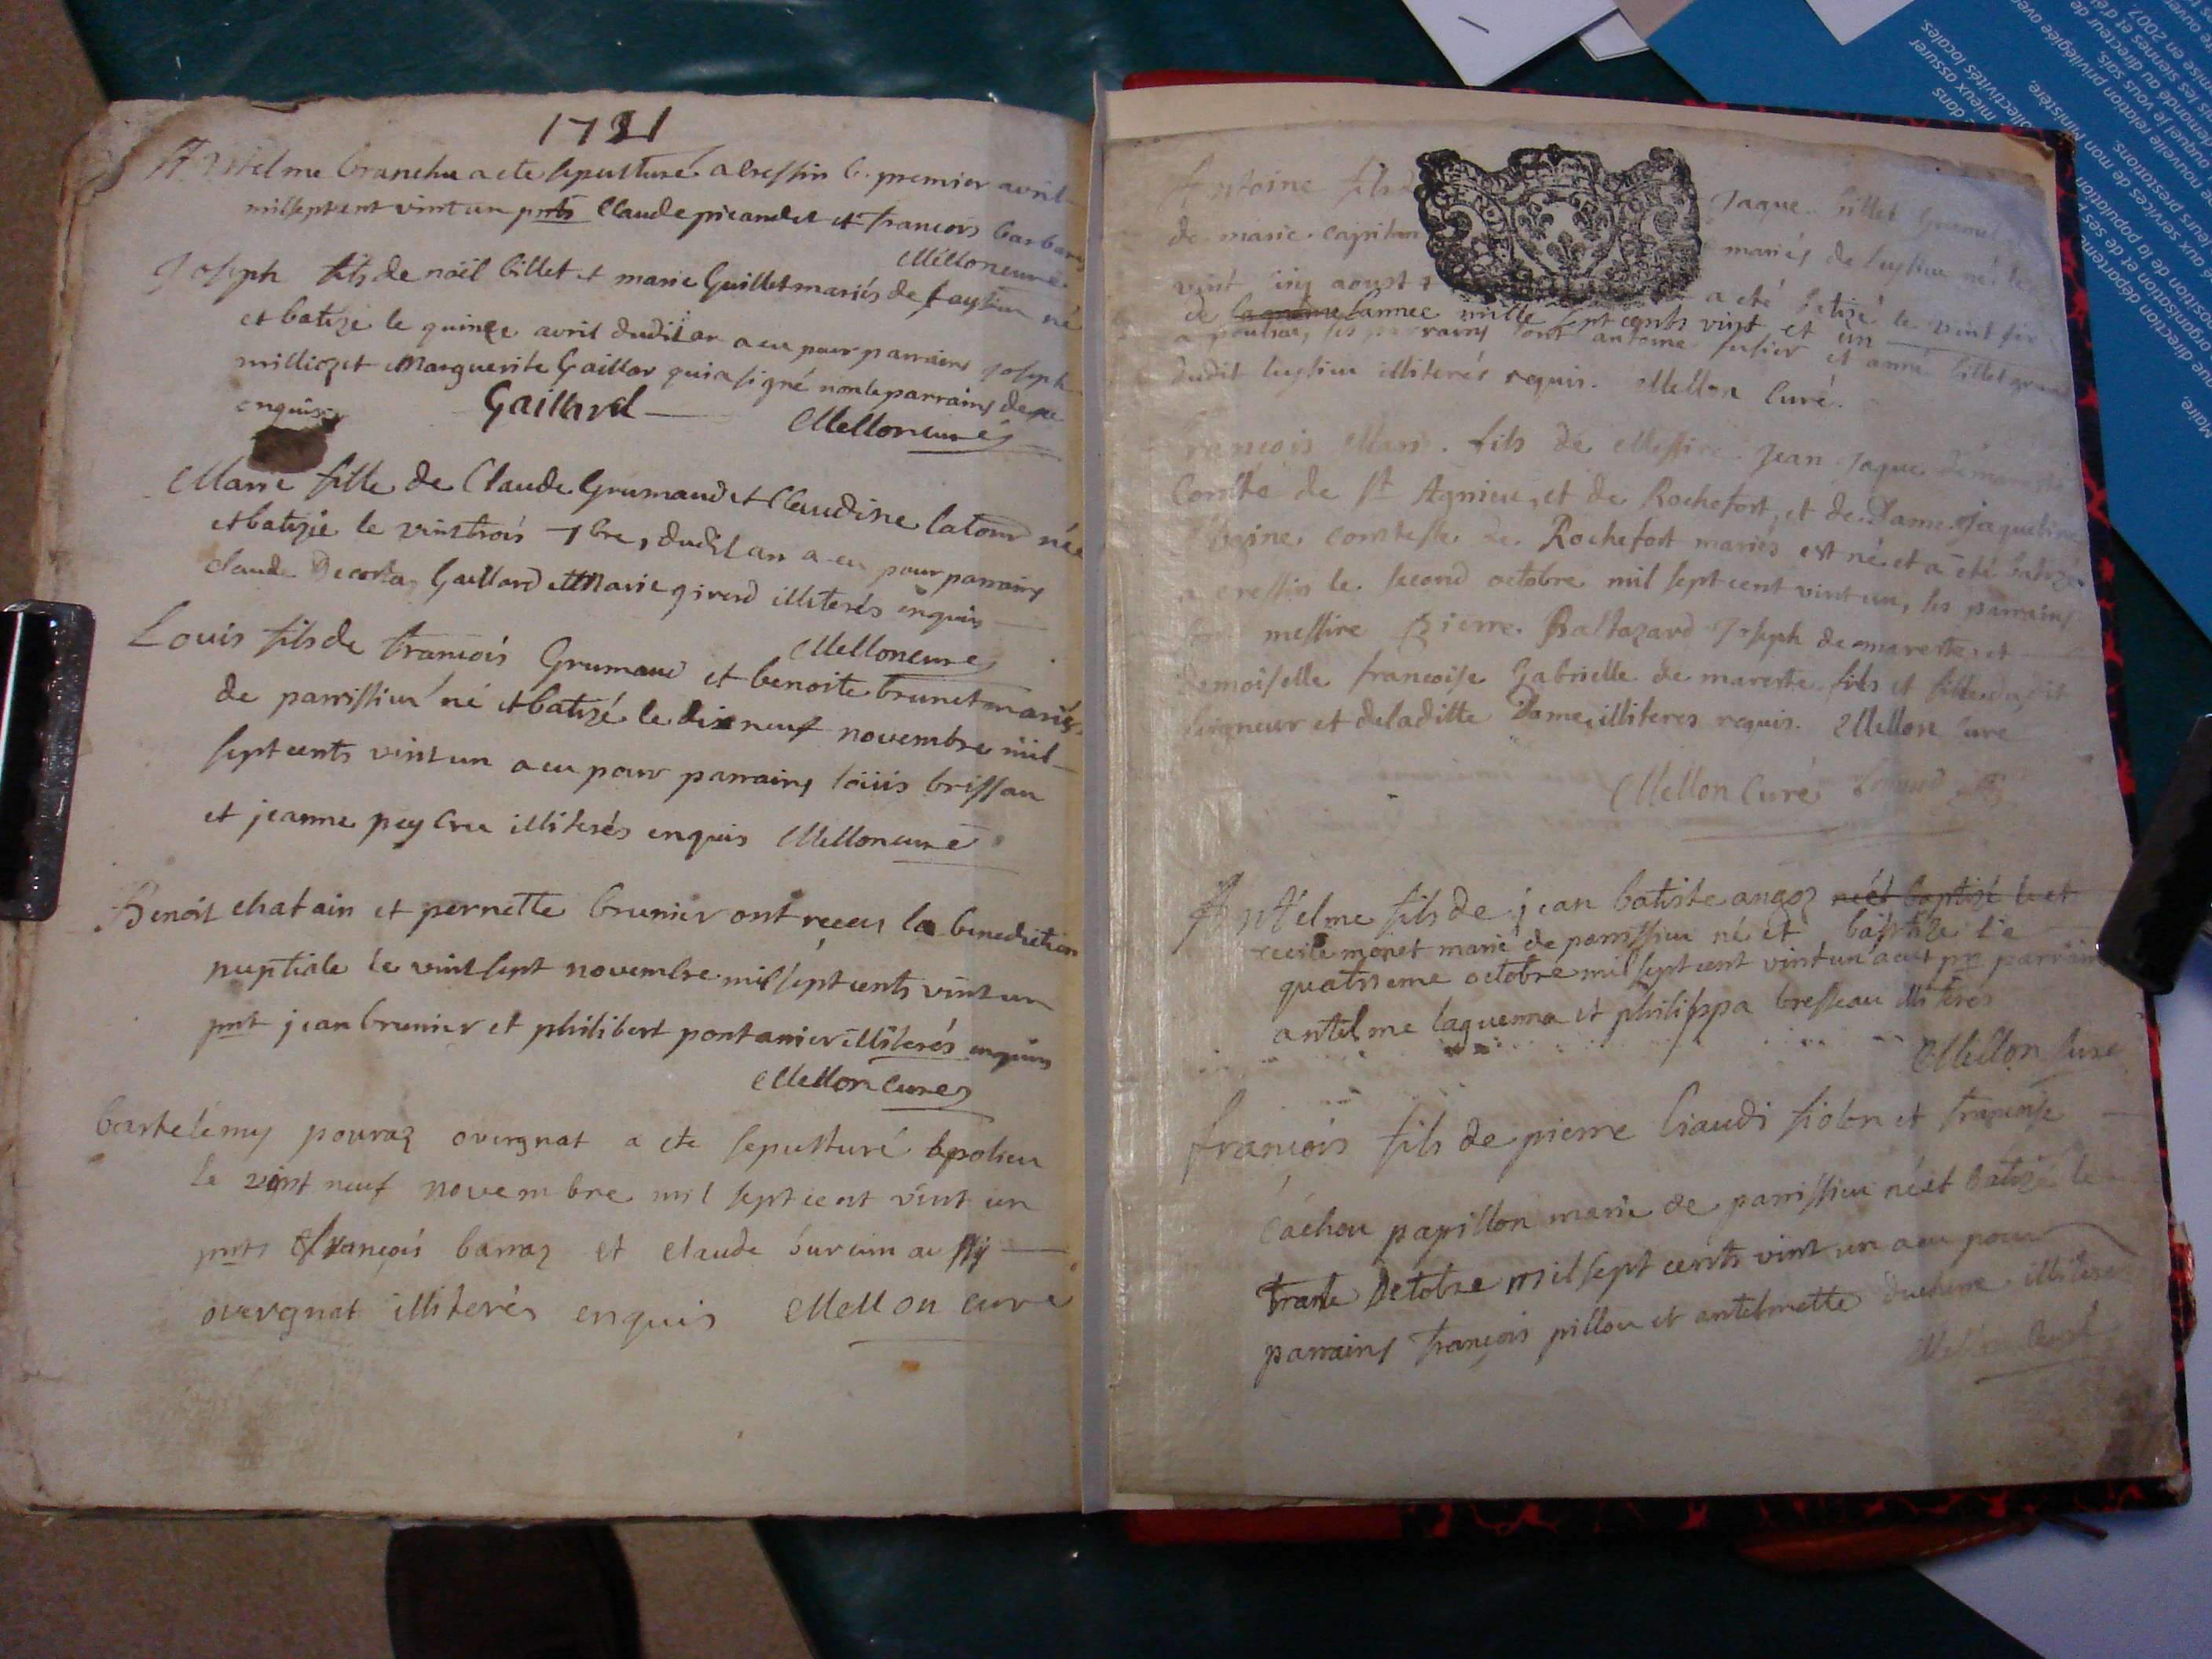 1721
Antelme branchu a ete sepulturé a Cressin le premier avril
mil sept cent vint un pnts Claude picandet et francois barbaret
Mellon curé
Joseph fils de noël billet et marie Guillet mariés de né
et batizé le quinze avril dudit an a eu pour parrains joseph
milliozet Marguerite Gaillar qui a signé non le parrains de ce
enquis
Gaillard
Mellon curé
Marie fille de Claude Grumaud et Claudine latour née
et batizée le vint trois 7bre, dudit an a eu pour parrains
claude Gaillard et Marie girerd illiterés enquis
Mellon curé
Louis fils de francois Grumaud et benoite brunet mariés
de parrissieu né et batizé le dix neuf novembre mil
sept cents vint un a eu pour parrains loüis brissau
et jeanne illiterés enquis Mellon curé
Benoit chatain et pernette brunier ont receu la benediction
nuptiale le vint sept novembre mil sept cents vint un
pnt jean brunier et philibert pontanier illiterés enquis
Mellon curé
bartelemy pouraz overgnat a ete sepulturé a polieu
le vint neuf novembre mil sept cent vint un
pnts francois barraz et claude burcim aussy
overgnat illiterés enquis Mellon curé
Antoine fils de Jaque billet Grumel
de marie capitan mariés de luysieu né le
vint aoust a été batizé le vint
de l'année mille sept cents vint et un
a pouliau, ses parrains sont antoine et anne billet
dudit luysieu illiterés requis. Mellon Curé.
François Marie fils de Messire Jean Jaque
Comte de St Agnieu, et de Rochefort, et de Dame Jaqueline
comtesse de Rochefort mariés est né et a été batizé
a cressin le second octobre mil sept cent vint un, ses parrains
messire Pierre Baltazard Joseph de mareste et
demoiselle francoise Gabrielle de mareste fils et fille dudit
seigneur et de laditte Dame, illiteres requis. Mellon Curé
Mellon Curé
Antelme fils de jean batiste angoz né et baptizé le et
monet marié de parrissieu né et baptize le
quatrieme octobre mil sept cent vint un a eut pr parrains
antelme laguenna et philippa bresseau illiteres
Mellon Curé
francois fils de pierre fiolon et francoise
cachou papillon marie de parrissieu né et batizé le
trante Octobre mil sept cents vint un a eu pour
parrains françois pillou et antelmette illiteres